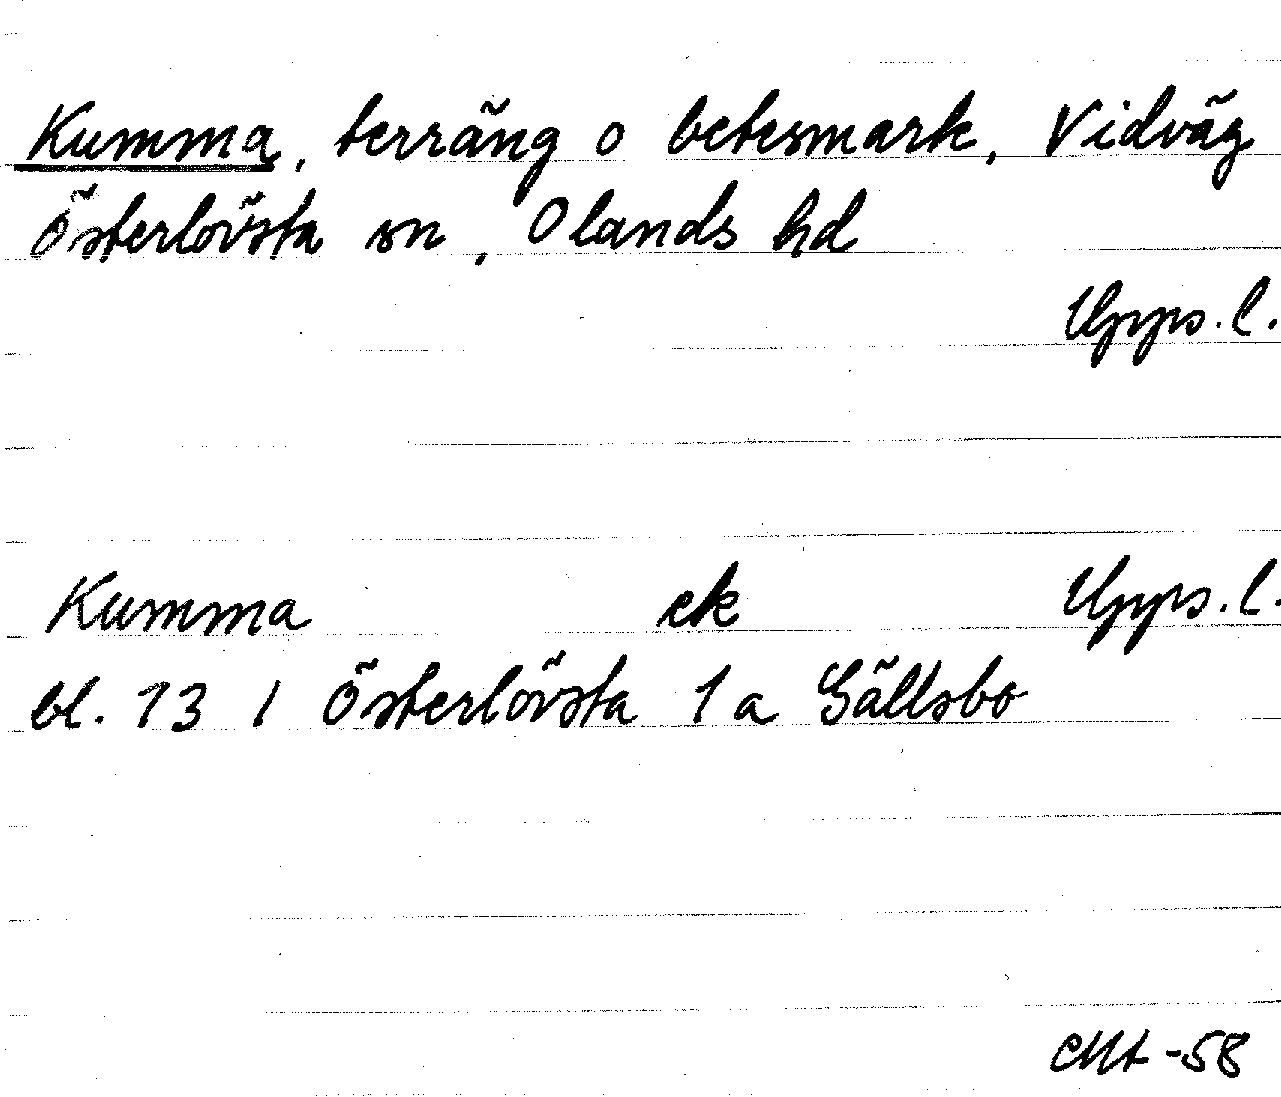 Kumma, terräng o betesmark, Vidväg
Österlövsta sn, Olands hd
Upps. l.
Kumma ek Upps. l.
bl. 13 1 Österlövsta 1a Sällsbo
-58